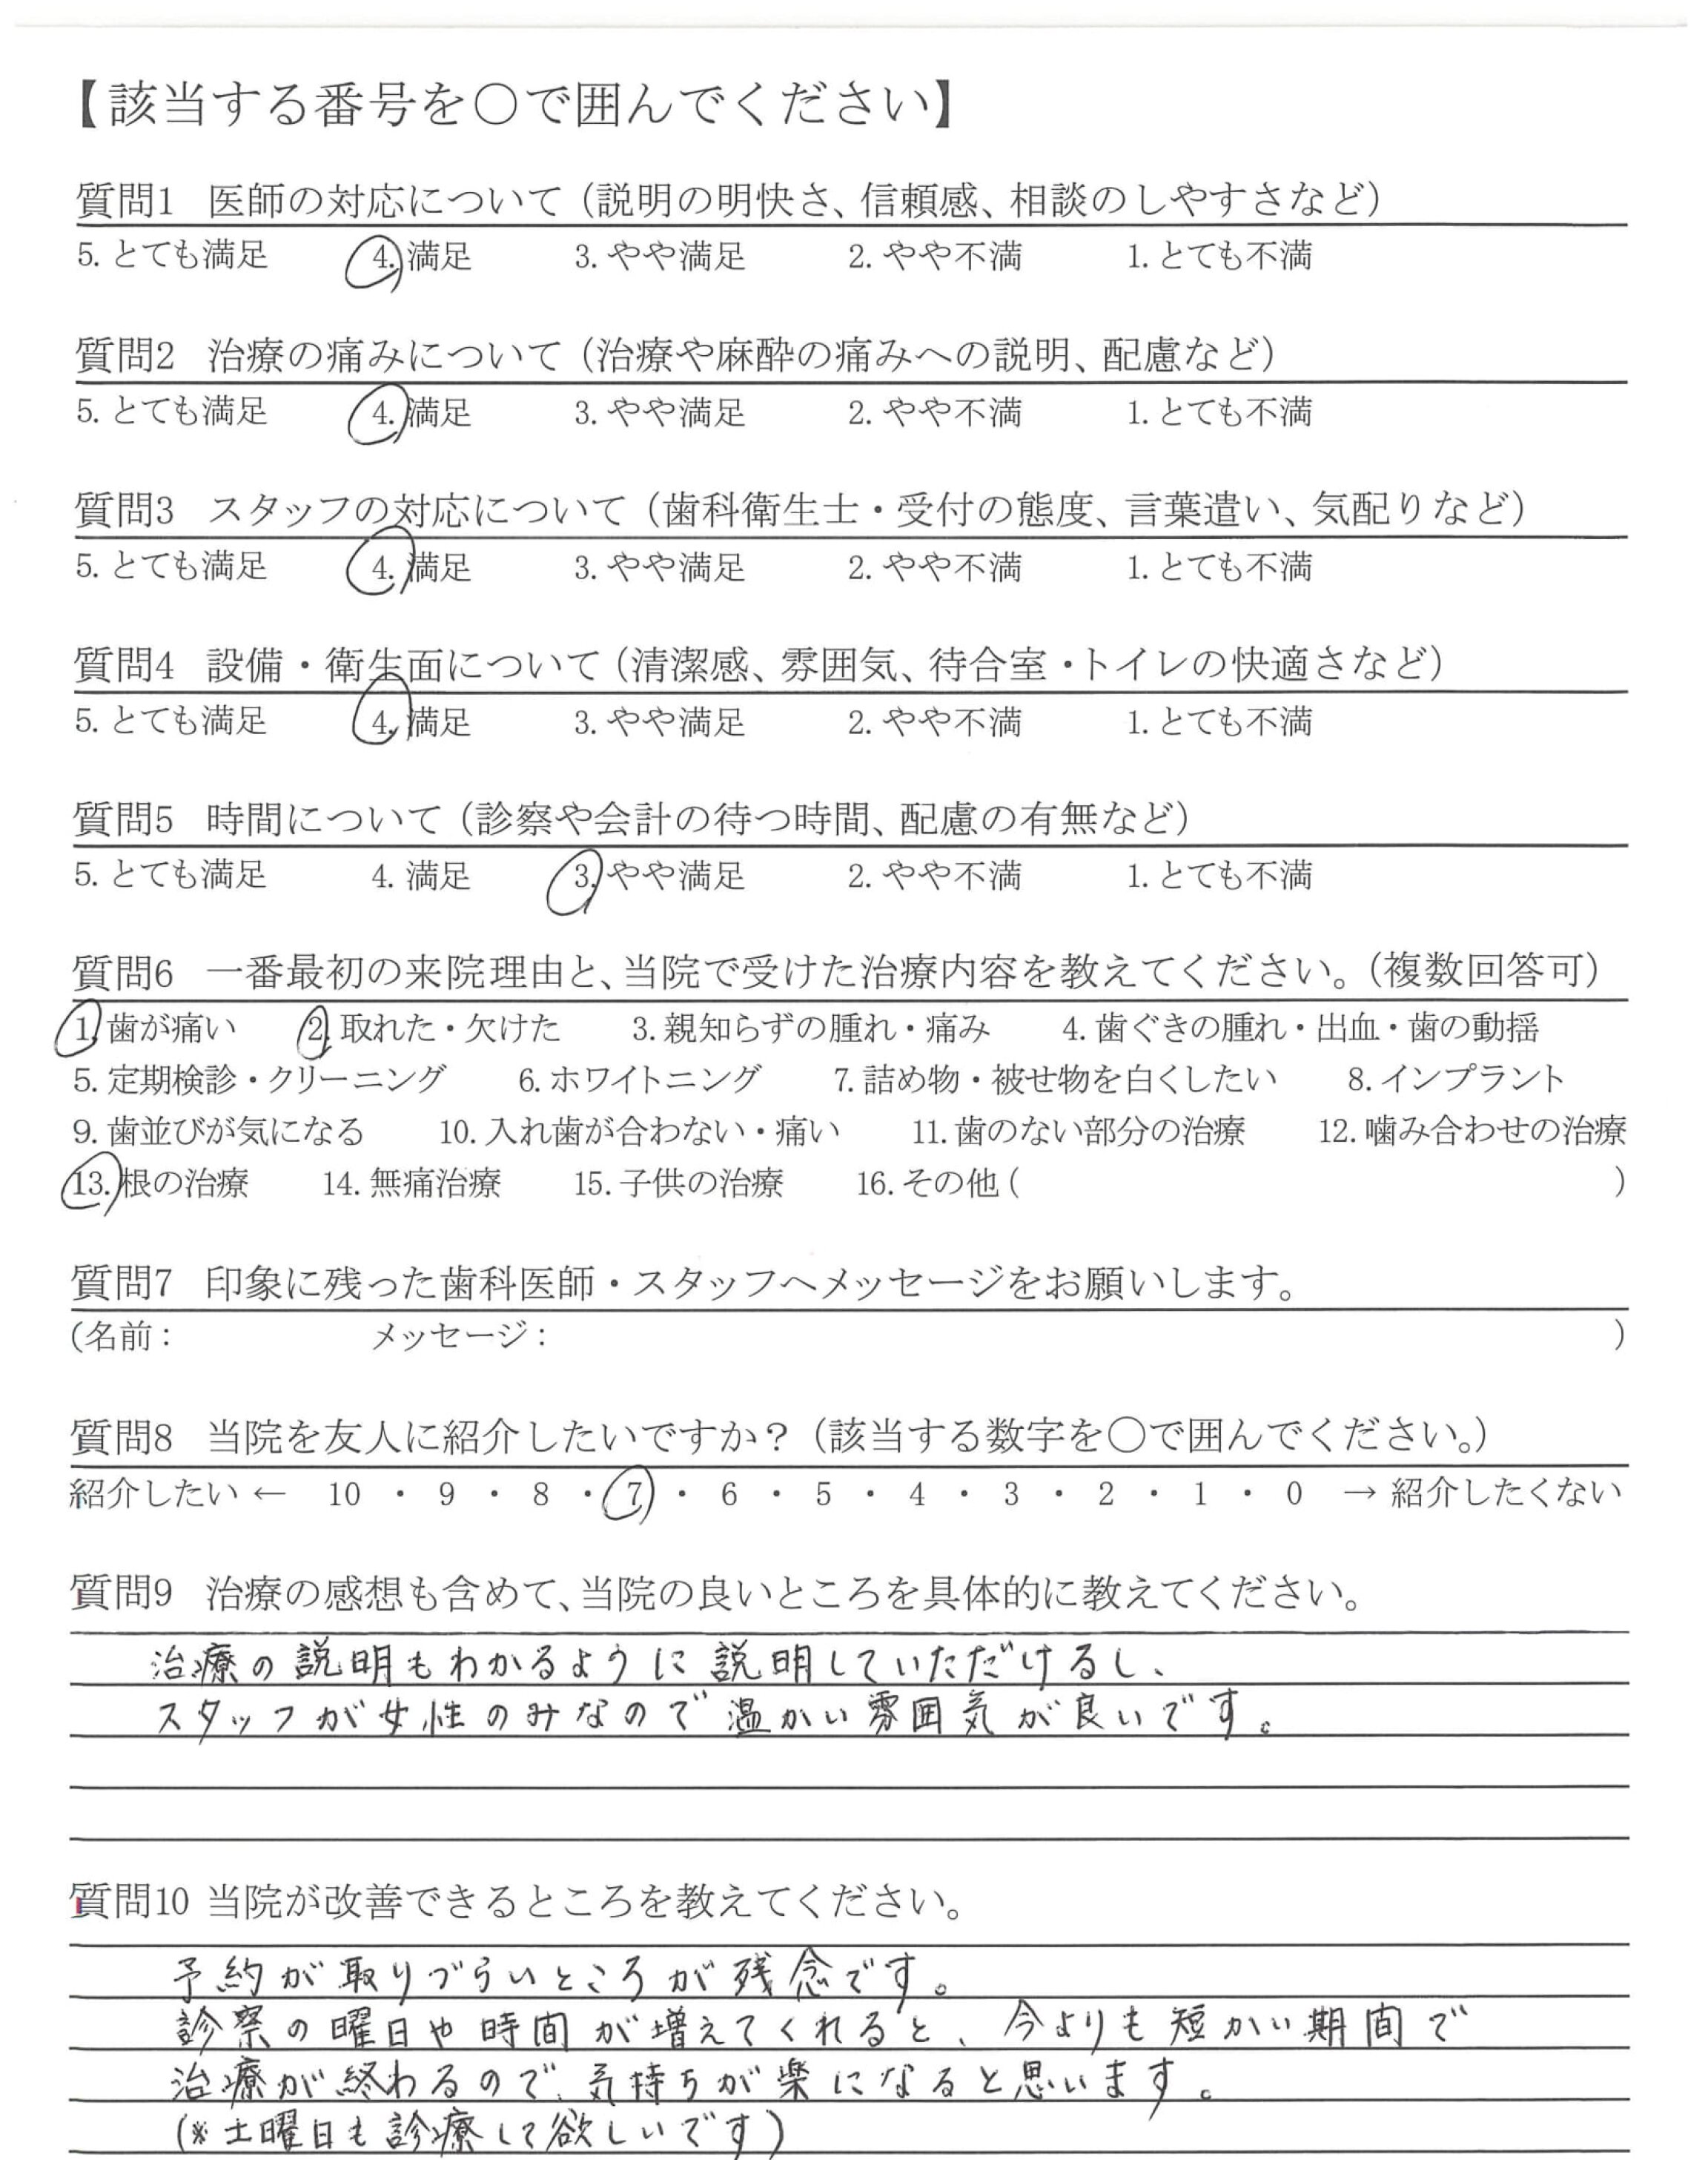 【該当する番号を○で囲んでください】
質問1 医師の対応について（説明の明快さ、信頼感、相談のしやすさなど）
5. とても満足 4. 満足 3. やや満足 2. やや不満 1. とても不満
質問2 治療の痛みについて（治療や麻酔の痛みへの説明、配慮など）
5. とても満足 4. 満足 3. やや満足 2. やや不満 1. とても不満
質問3 スタッフの対応について（歯科衛生士・受付の態度、言葉遣い、気配りなど）
5. とても満足 4. 満足 3. やや満足 2. やや不満 1. とても不満
質問4 設備・衛生面について（清潔感、雰囲気、待合室・トイレの快適さなど）
5. とても満足 4. 満足 3. やや満足 2. やや不満 1. とても不満
質問5 時間について（診察や会計の待つ時間、配慮の有無など）
5. とても満足 4. 満足 3. やや満足 2. やや不満 1. とても不満
質問6 一番最初の来院理由と、当院で受けた治療内容を教えてください。（複数回答可）
1. 歯が痛い 2. 取れた・欠けた 3. 親知らずの腫れ・痛み 4. 歯ぐきの腫れ・出血・歯の動揺
5. 定期検診・クリーニング 6. ホワイトニング 7. 詰め物・被せ物を白くしたい 8. インプラント
9. 歯並びが気になる 10. 入れ歯が合わない・痛い 11. 歯のない部分の治療 12. 噛み合わせの治療
13. 根の治療 14. 無痛治療 15. 子供の治療 16. その他（ ）
質問7 印象に残った歯科医師・スタッフへメッセージをお願いします。
（名前： メッセージ： ）
質問8 当院を友人に紹介したいですか？（該当する数字を○で囲んでください。）
紹介したい ← 10 ・ 9 ・ 8 ・ 7 ・ 6 ・ 5 ・ 4 ・ 3 ・ 2 ・ 1 ・ 0 → 紹介したくない
質問9 治療の感想も含めて、当院の良いところを具体的に教えてください。
治療の説明もわかるように説明していただけるし、
スタッフが女性のみなので温かい雰囲気が良いです。
質問10 当院が改善できるところを教えてください。
予約が取りづらいところが残念です。
診察の曜日や時間が増えてくれると、今よりも短かい期間で
治療が終わるので、気持ちが楽になると思います。
（※土曜日も診療して欲しいです）